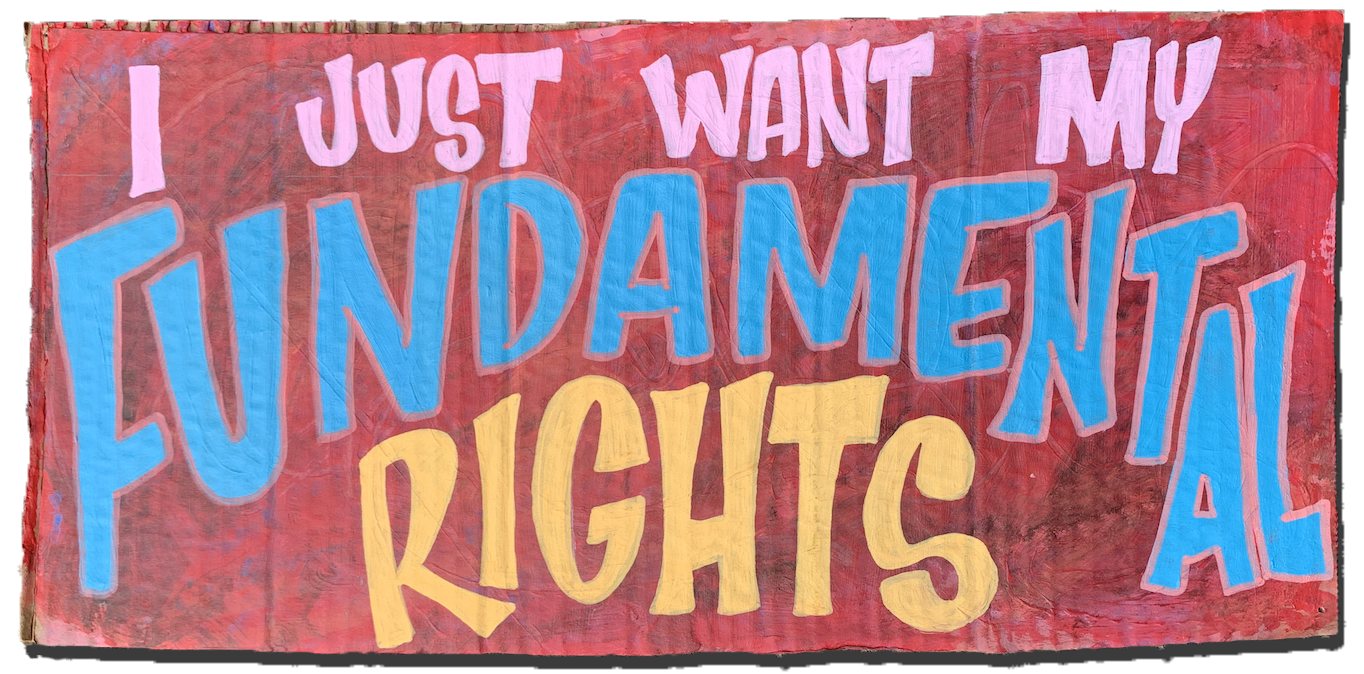 I JUST WANT MY
FUNDAMENTAL
RIGHTS